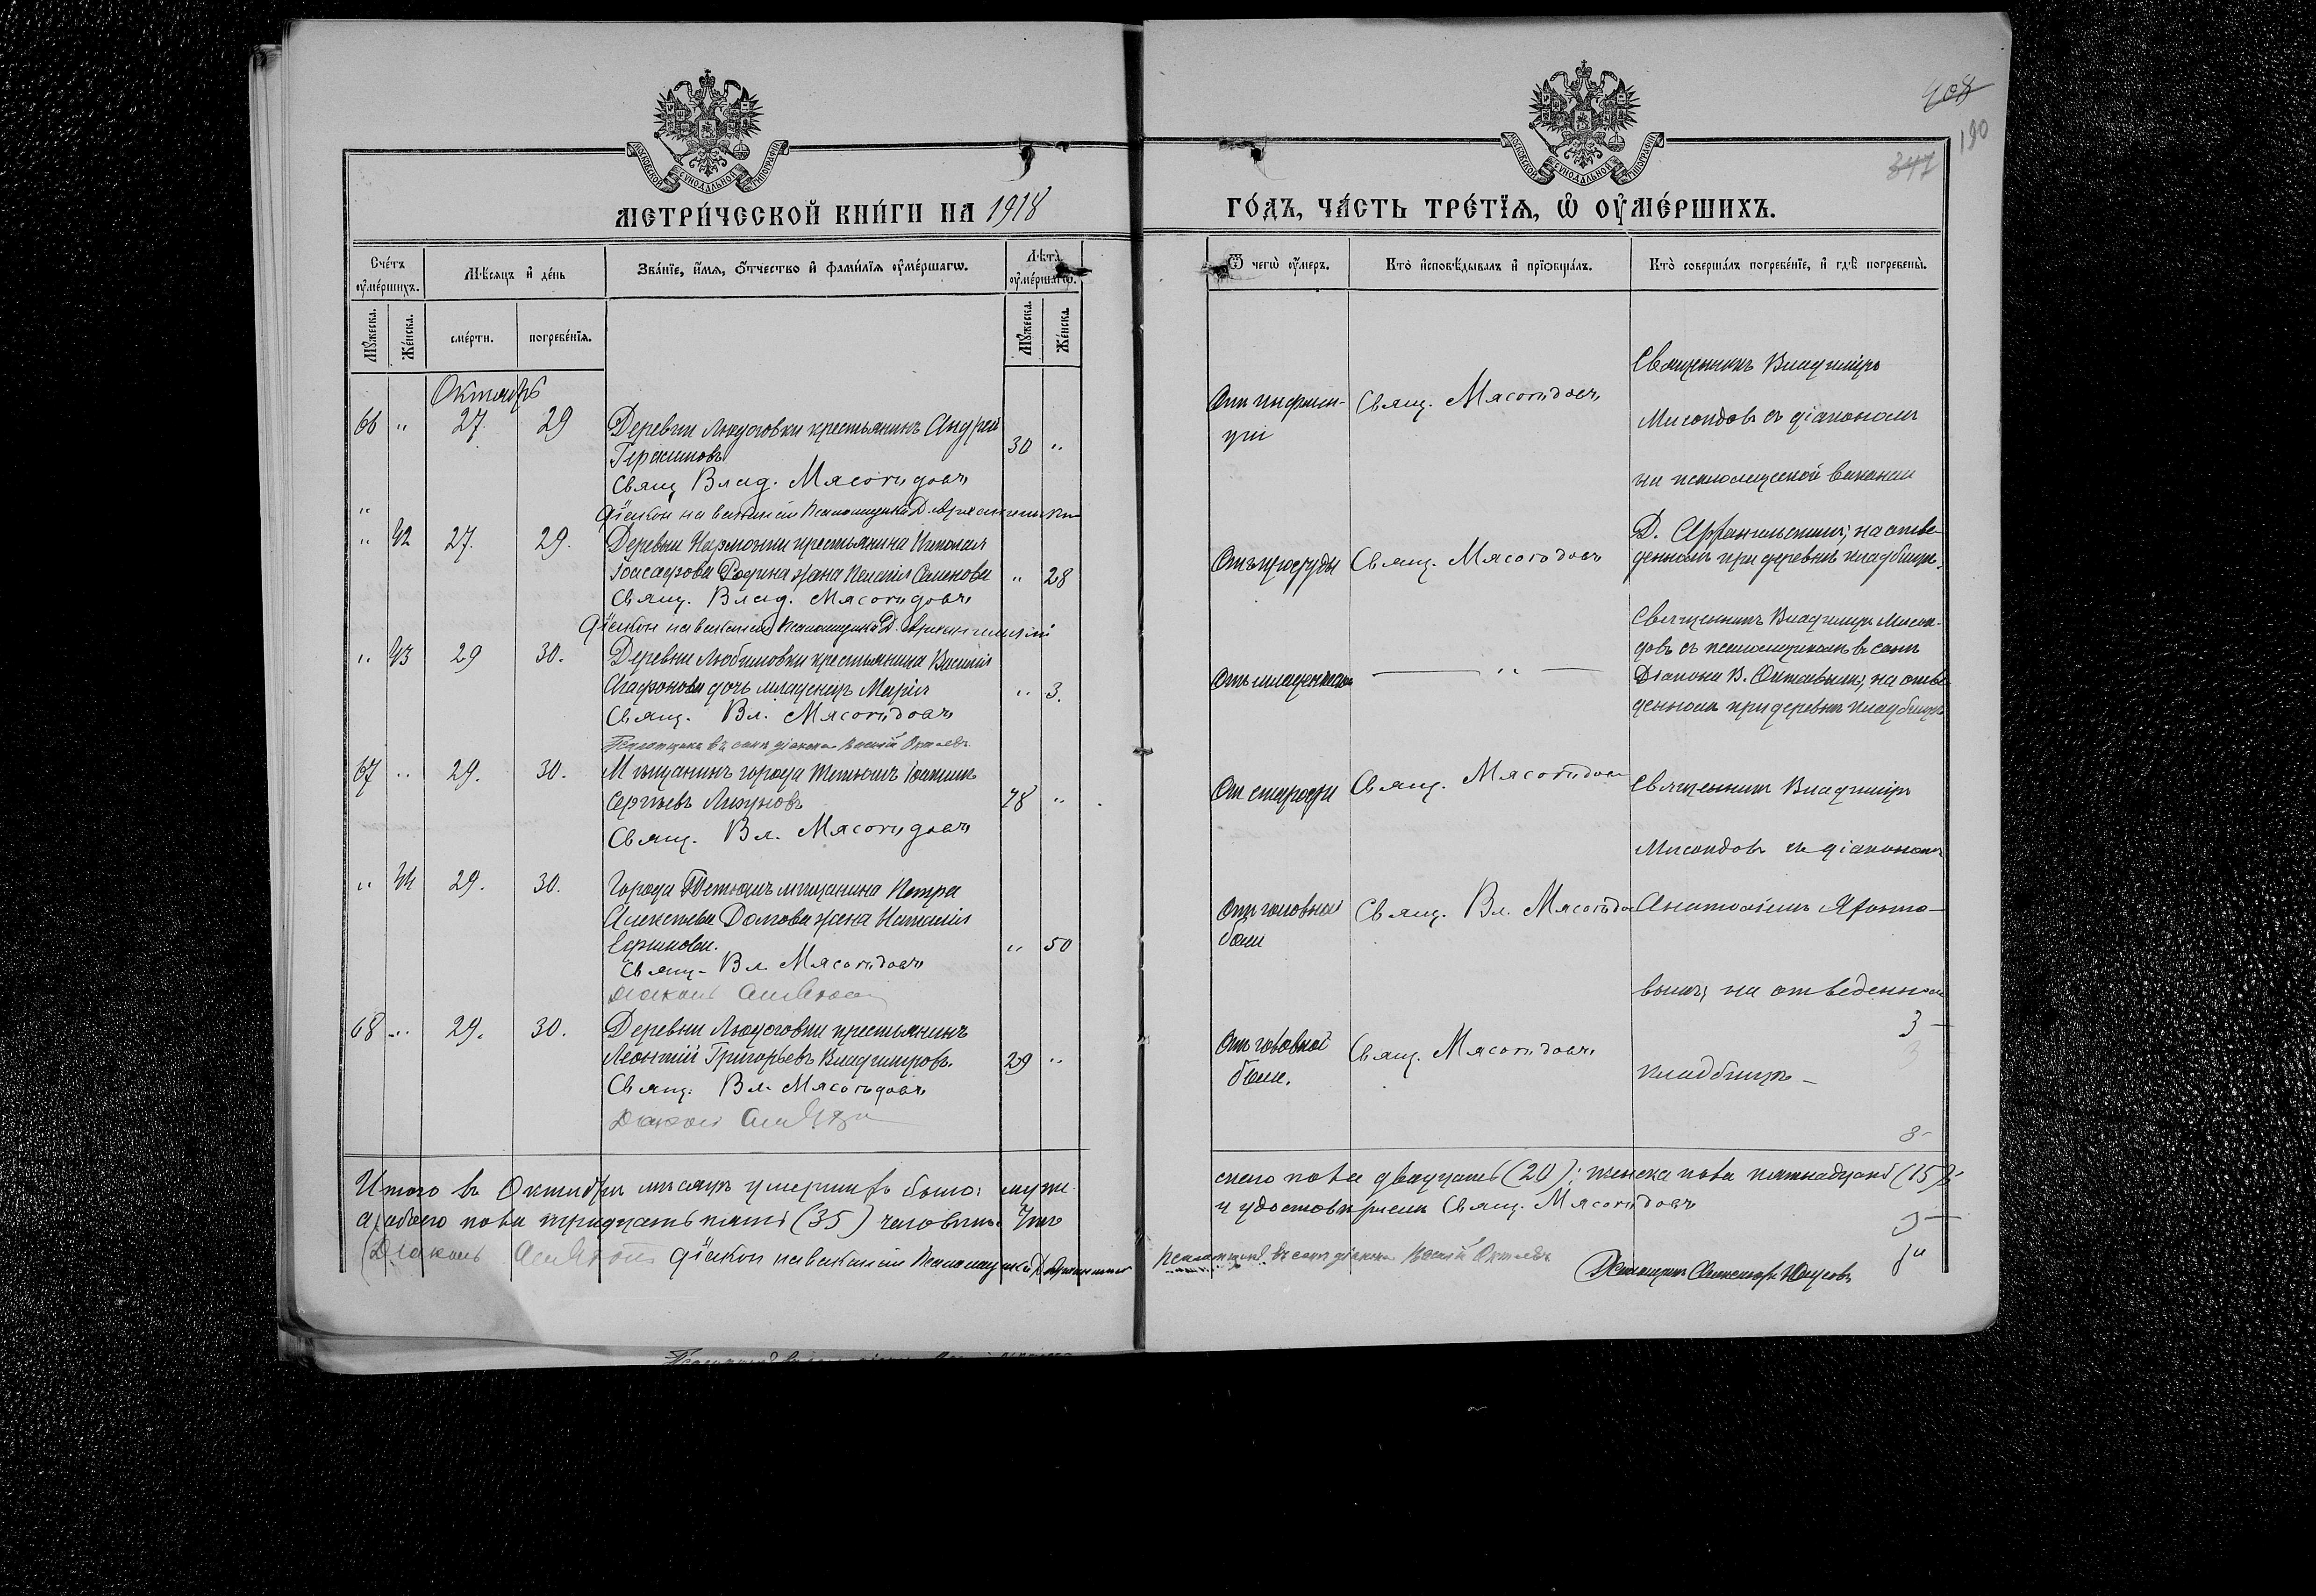 408
190
347
МОСКОВСКОЙ СУНОДАЛЬНОЙ ТИПОГРАФІИ
МОСКОВСКОЙ СУНОДАЛЬНОЙ ТИПОГРАФІИ
МЕТРИ́ЧЕСКОЙ КНИ́ГИ НА 1918
ГО́ДЪ, ЧА́СТЬ ТРЕ́ТЇѦ, Ѡ҆ ОУ҆МЕ́РШИХЪ.
Сче́тъ оу҆ме́ршихъ.
Мѣ́сяцъ и҆ де́нь
Зва́нїе, и҆́мѧ, ѻ҆́тчество и҆ фами́лїѧ оу҆ме́ршагѡ.
Лѣ́та оу҆ме́ршагѡ.
Ѿ чегѡ̀ оу҆́меръ.
Кто̀ и҆сповѣ́дывалъ и҆ прїѡбща́лъ.
Кто̀ соверша́лъ погребе́нїе, и҆ гдѣ̀ погребены̀.
Мꙋ́жеска.
Же́нска.
сме́рти.
погребе́нїѧ.
Мꙋ́жеска.
Же́нска.
Октябрь
66 " 27. 29 Деревни Людоговки крестьянинъ Андрей
Герасимовъ 30 "
Свящ Влад. Мясоѣдовъ
Діакон на вакансіи Псаломщика Д. Архангельскій
Отъ инфлюен-
ціи
Свящ. Мясоѣдовъ
Священникъ Владиміръ
Мясоѣдовъ съ діакономъ
на псаломщеской вакансіи
" 42 27. 29. Деревни крестьянина Николая
Іоасафова Родина жена Пелагія Семенова " 28
Свящ. Влад. Мясоѣдовъ
Діакон на вакансіи Псаломщика Д. Архангельскій
Отъ простуды Свящ. Мясоѣдовъ
Д. Архангельскимъ, на отве-
денномъ при деревнѣ кладбищѣ.
" 43 29 30. Деревни Любимовки крестьянина Василія
Агафонова дочь младенецъ Марія " 3.
Свящ. Вл. Мясоѣдовъ
Псаломщикъ въ санѣ діакона Василій Октаевъ
Отъ младенческой — " —
Священникъ Владиміръ Мясоѣ-
довъ съ псаломщикомъ въ санѣ
Діакона В. Октаевымъ, на отве-
денномъ при деревнѣ кладбищѣ
67 " 29. 30. Мѣщанинъ города Тетюшъ Іоакимъ
Сергѣевъ 78 "
Свящ. Вл. Мясоѣдовъ
От старости Свящ. Мясоѣдовъ
Священникъ Владиміръ
Мясоѣдовъ съ діакономъ
" 44 29. 30. Города Тетюшъ мѣщанина Петра
Алексѣева Долгова жена Наталія
Ефимова. " 50
Свящ. Вл. Мясоѣдовъ
Діаконъ
Отъ головной
боли
Свящ. Вл. Мясоѣдо
Анатоліемъ
вымъ, на отведенномъ
68 " 29. 30. Деревни Людоговки крестьянинъ
Леонтій Григорьевъ Владиміровъ. 29 "
Свящ. Вл. Мясоѣдовъ
Діаконъ
Отъ головной
боли.
Свящ. Мясоѣдовъ
кладбищѣ —
3 —
3
8 -
Итого въ Октябрѣ мѣсяцѣ умершихъ было: муже-
ского пола двадцать (20); женска пола пятнадцать (15),
а обоего пола тридцать пять (35) человѣкъ. Что
и удостовѣряемъ Свящ. Мясоѣдовъ
Діаконъ Діакон на вакансіи Псаломщика Д. Архангельскій
Псаломщикъ въ санѣ діакона Василій Октаевъ
Псаломщикъ Александръ